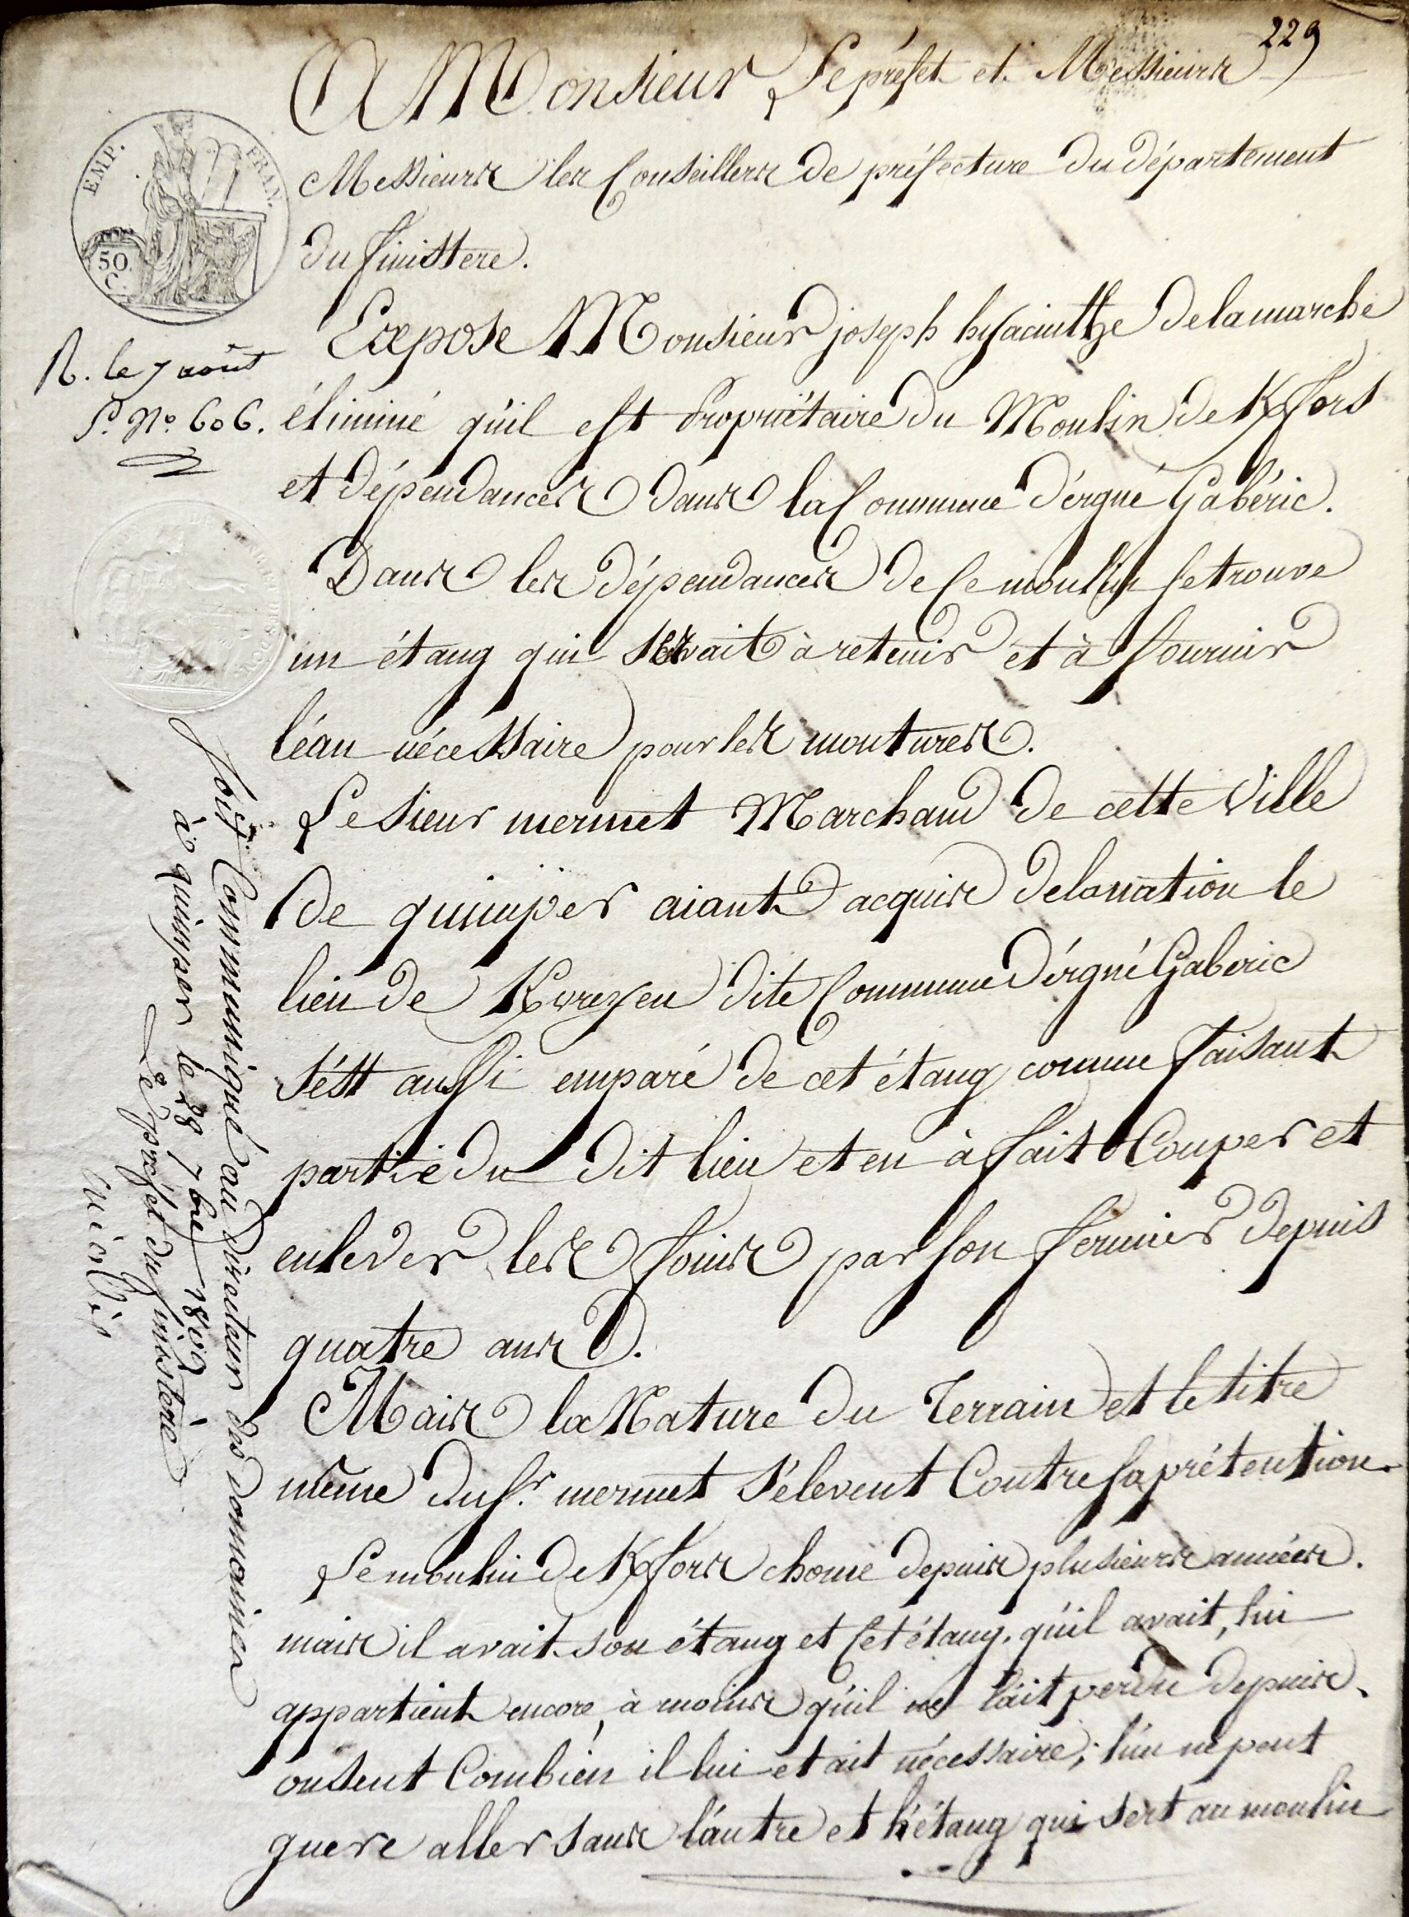 229
A Monsieur Le préfet et Messieurs
Messieurs les Conseillers de préfecture du département
du finistere.
Expose Monsieur joseph hyacinthe Delamarche
éliminé qu'il est Propriétaire du Moulin de Kfors
et dépendances dans la Commune d'érgué Gabéric.
Dans les dépendances de Ce moulin se trouve
un étang qui servait à retenir et à fournir
l'éau nécessaire pour les moutures.
Le sieur mermet Marchand de cette Ville
de quimper aiant acquis de la nation le
lieu de Kvreyen dite Commune d'érgué Gaberic
s'ést aussi emparé de cet étang comme faisant
partie du dit lieu et en à fait Couper et
enlever les foins par son fermier depuis
quatre ans.
Mais la Nature du Terrain et le titre
même du sr. mermet s'élevent Contre sa prétention.
Le moulin de Kfors chome depuis plusieurs années.
mais il avait son étang et Cet étang. qu'il avait, lui
appartient encore, à moins qu'il ne l'ait perdu depuis.
on sent Combien il lui etait nécessaire; l'un ne peut
guere aller sans l'autre et l'étang qui sert au moulin
EMP. FRAN.
50 C.
R. le 7 août
P. No. 606.
soit Communiqué au Directeur des domaines
à quimper le 28 7bre
Le préfet du finistère
Miollis